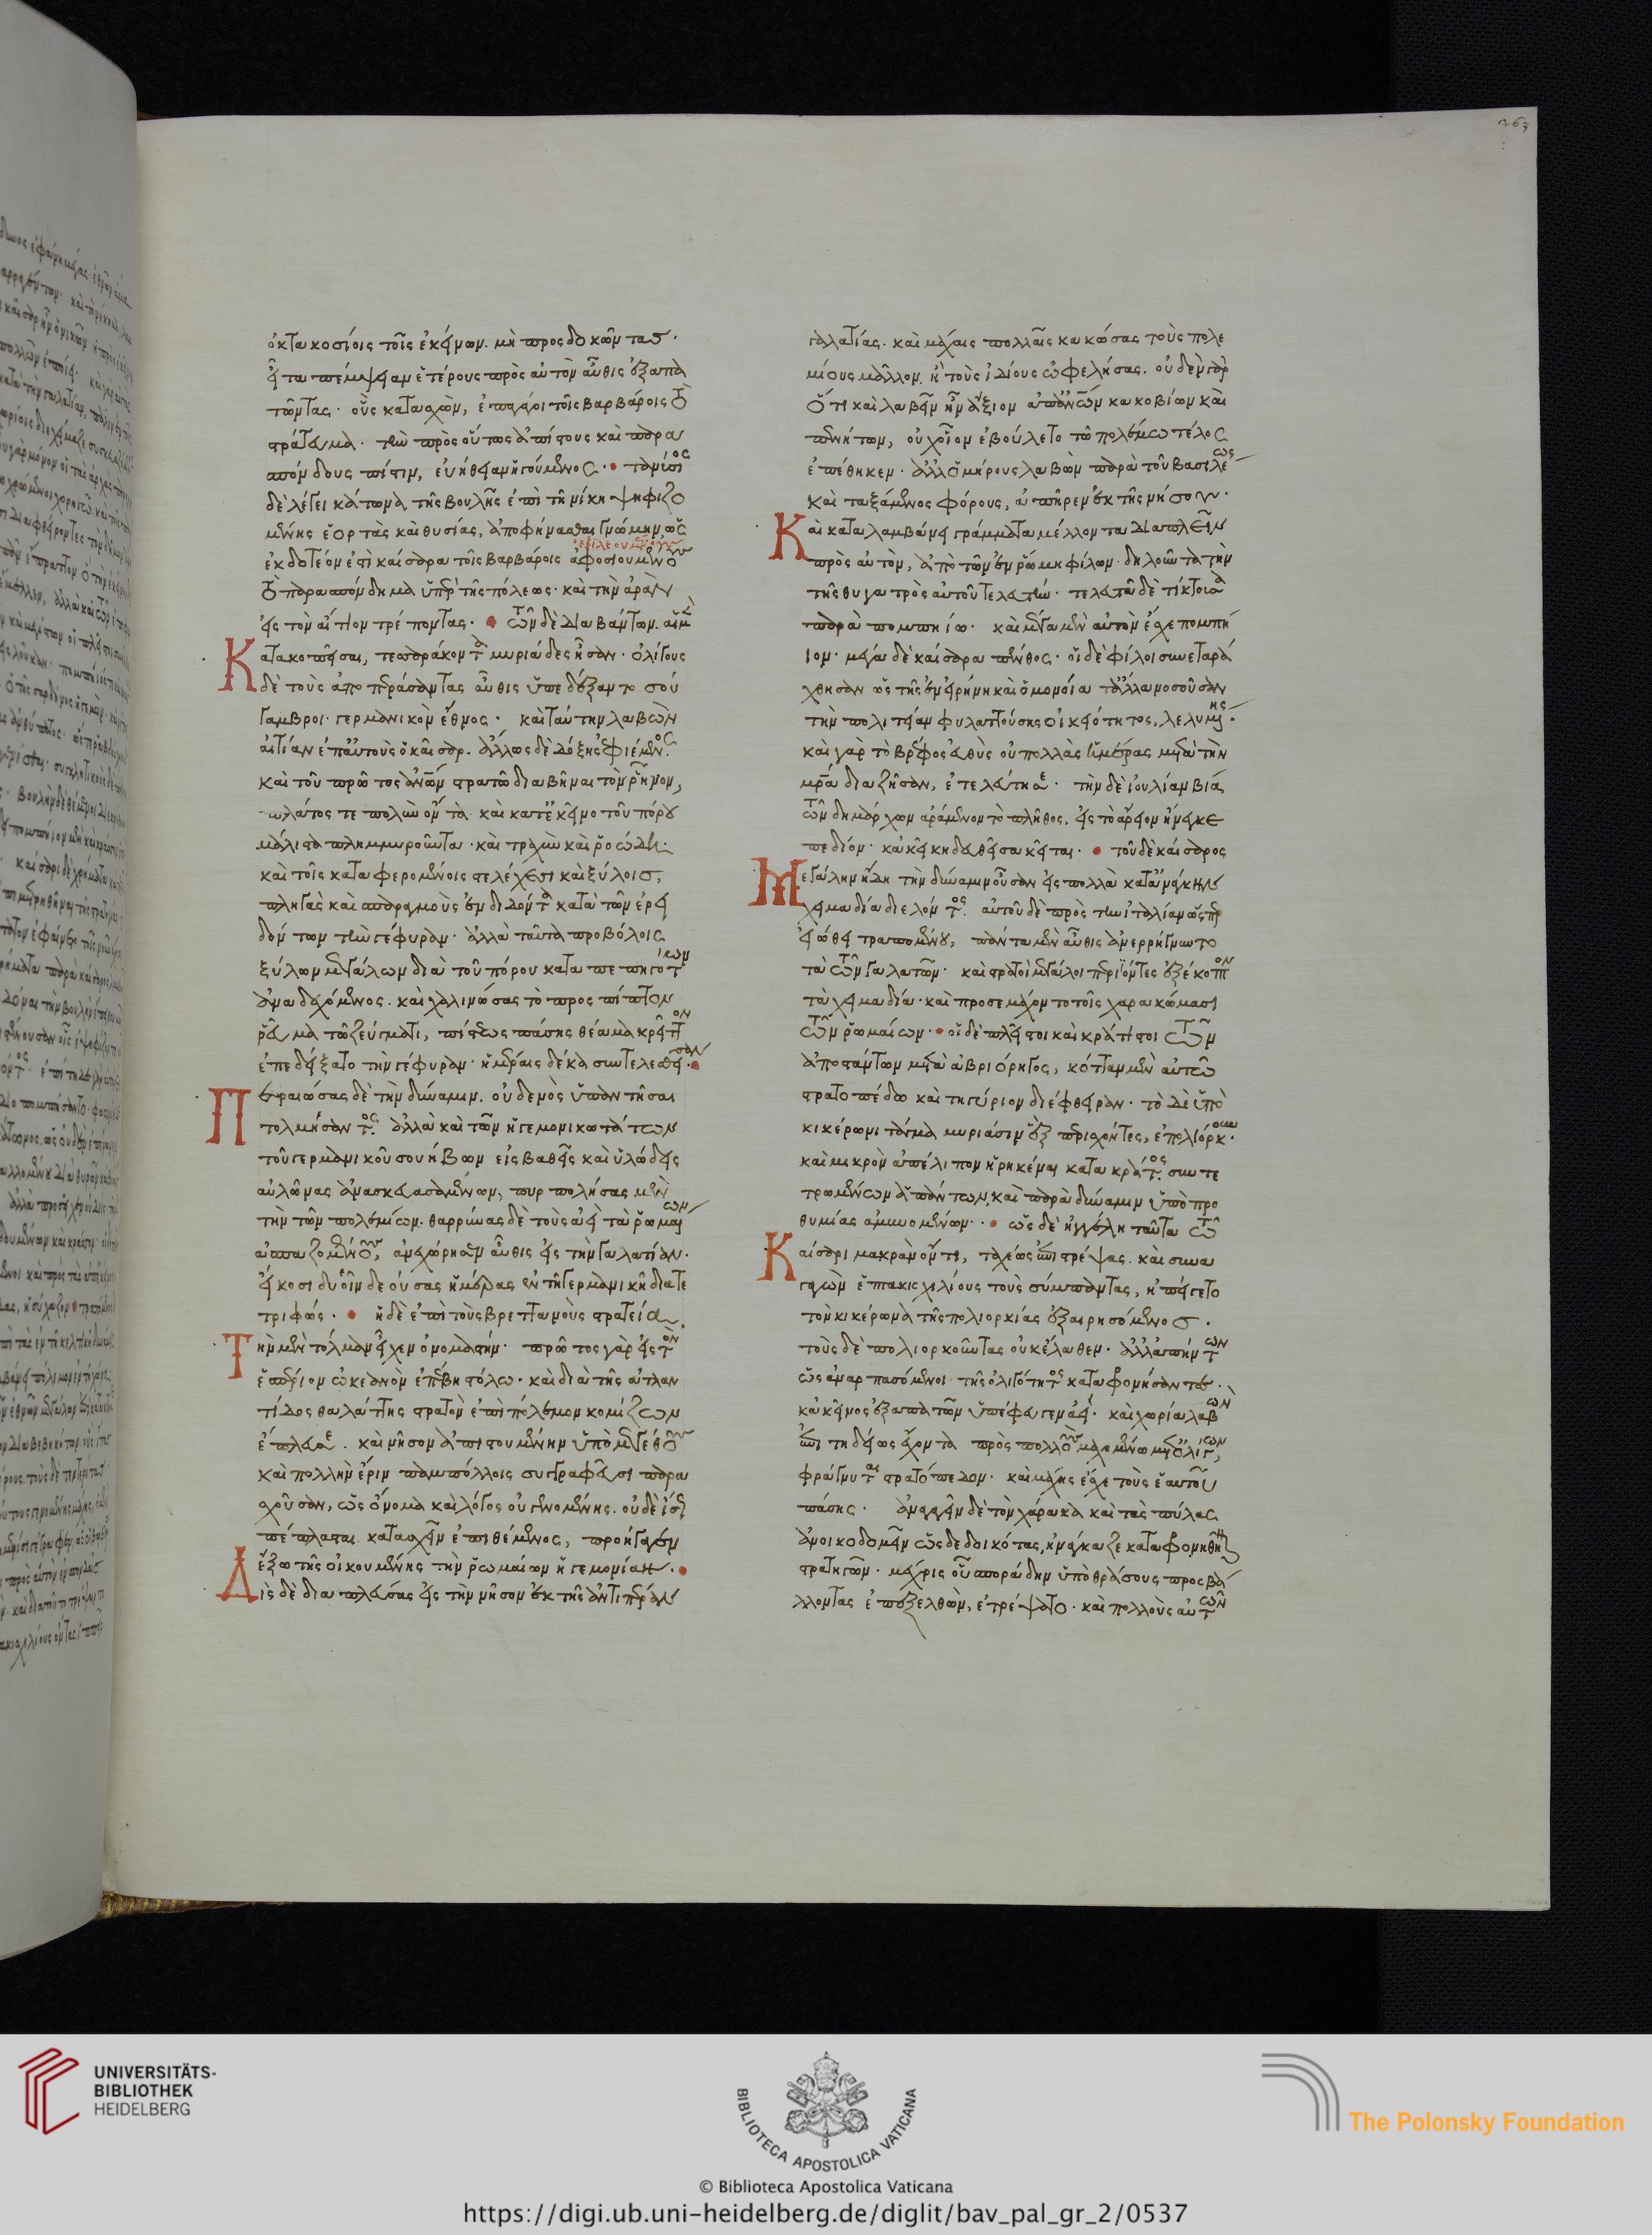 ὀκτακοσίοις τοῖς ἐκείνων. μὴ προσδοκῶντας·
εἶτα πέμψειαν ἑτέρους πρὸς αὐτὸν αὖθις ἐξαπα
τῶντας· οὓς κατασχὼν, ἐπαγάγοι τοῖς βαρβάροις τὸ
στράτευμα· τὴν πρὸς οὕτως ἀπίστους καὶ παρα
σπόνδους πίστιν, εὐήθειαν ἡγούμενος·
δὲ λέγει κάτωνα τῆς βουλῆς ἐπὶ τῇ νίκῃ ψηφιζο
μένης ἑορτὰς καὶ θυσίας, ἀποφήνασθαι γνώμην ὡς
ἐκδοτέον ἐστὶ καίσαρα τοῖς βαρβάροις ἀφοσιουμένους
τὸ παρασπόνδημα ὑπὲρ τῆς πόλεως· καὶ τὴν ἀρὰν
εἰς τὸν αἴτιον τρέποντας· τῶν δὲ διαβάντων. αἱ μὲν
Κατακοπεῖσαι, τεσσαράκοντα μυριάδες ἦσαν· ὀλίγους
δὲ τοὺς ἀποπεράσαντας αὖθις ὑπεδέξαντο σού
γαμβροι· γερμανικὸν ἔθνος· καὶ ταύτην λαβὼν
αἰτίαν ἐπ' αὐτοὺς ὁ καῖσαρ. ἄλλως δὲ δόξης ἐφιέμενος.
καὶ τοῦ πρῶτος ἀνθρώπων στρατῶ διαβῆναι τὸν ῥῆνον,
πλάτος τε πολὺν ὄντα καὶ κατ' ἐκεῖνο τοῦ πόρου
μάλιστα πλημμυροῦντα· καὶ τραχὺν καὶ ῥοώδη·
καὶ τοῖς καταφερομένοις στελέχεσι καὶ ξύλοις,
πληγὰς καὶ σπαραγμοὺς ἐνδιδόντα κατὰ τῶν ἐρει
δόντων τὴν γέφυραν· ἀλλὰ ταῦτα προβόλοις
ξύλων μεγάλων διὰ τοῦ πόρου καταπεπηγότων
ἀναδεχόμενος. καὶ χαλινώσας τὸ προσπίπτον
ῥεῦμα τῶ ζεύγματι, πίστεως πάσης θέαμα κρεῖττον
ἐπεδείξατο τὴν γέφυραν· ἡμέραις δέκα συντελεσθεῖσαν·
Περαιώσας δὲ τὴν δύναμιν. οὐδενὸς ὑπαντῆσαι
τολμήσαντος. ἀλλὰ καὶ τῶν ἡγεμονικωτάτων
τοῦ γερμανικοῦ σουήβων εἰς βαθεῖς καὶ ὑλώδεις
αὐλῶνας ἀνασκευασαμένων, πυρπολήσας μὲν
τὴν τῶν πολεμίων. θαρρύνας δὲ τοὺς ἀεὶ τὰ ῥωμαίων
ἀσπαζομένους, ἀνεχώρησεν αὖθις εἰς τὴν γαλατίαν·
εἴκοσι δυοῖν δεούσας ἡμέρας ἐν τῇ γερμανικῇ διατε
τριφώς· ἡ δὲ ἐπὶ τοὺς βρεττανοὺς στρατεία,
Τὴν μὲν τόλμαν εἶχεν ὀνομαστήν· πρῶτος γὰρ εἰς τὸν
ἑσπέριον ὠκεανὸν ἐπέβη στόλω· καὶ διὰ τῆς ἀτλαν
τίδος θαλάττης στρατὸν ἐπὶ πόλεμον κομίζων
ἔπλευσε. καὶ νῆσον ἀπιστουμένην ὑπὸ μεγέθους
καὶ πολλὴν ἔριν παμπόλλοις συγγραφεῦσι παρα
σχοῦσαν, ὡς ὄνομα καὶ λόγος οὐ γενομένης. οὐδὲ
πέπλασται. κατασχεῖν ἐπιθέμενος, προήγαγεν
ἔξω τῆς οἰκουμένης τὴν ῥωμαίων ἡγεμονίαν·
Δὶς δὲ διαπλεύσας εἰς τὴν νῆσον ἐκ τῆς ἀντιπέραν
γαλατίας. καὶ μάχαις πολλαῖς κακώσας τοὺς πολε
μίους μᾶλλον. ἢ τοὺς ἰδίους ὠφελήσας. οὐδὲν γὰρ
ὅτι καὶ λαβεῖν ἦν ἄξιον ἀπ' ἀνθρώπων κακοβίων καὶ
πενήτων, οὐχ οἷον ἐβούλετο τῶ πολέμω τέλος
ἐπέθηκεν· ἀλλ' ὁμήρους λαβὼν παρὰ τοῦ βασιλέως
καὶ ταξάμενος φόρους, ἀπῆρεν ἐκ τῆς νήσου·
Καὶ καταλαμβάνει γράμματα μέλλοντα διαπλεῖν
πρὸς αὐτὸν, ἀπὸ τῶν ἐν ῥώμη φίλων· δηλοῦντα τὴν
τῆς θυγατρὸς αὐτοῦ τελευτήν· τελευτᾶ δὲ τίκτουσα
παρὰ πομπηίω· καὶ μέγα μὲν αὐτὸν ἔσχε πομπή
ιον· μέγα δὲ καίσαρα πένθος· οἱ δὲ φίλοι συνεταρά
χθησαν ὡς τῆς ἐν εἰρήνη καὶ ὁμονοία τἄλλα νοσοῦσαν
τὴν πολιτείαν φυλαττούσης οἰκειότητος, λελυμένης·
καὶ γὰρ τὸ βρέφος εὐθὺς οὐ πολλὰς ἡμέρας μετὰ τὴν
μητέρα διαζῆσαν, ἐτελεύτησε· τὴν δὲ ἰουλίαν βία
τῶν δημάρχων ἀράμενον τὸ πλῆθος, εἰς τὸ ἄρειον ἤνεγκε
πεδίον· κἀκεῖ κηδευθεῖσα κεῖται· τοῦ δὲ καίσαρος
Μεγάλην ἤδη τὴν δύναμιν οὖσαν εἰς πολλὰ κατ' ἀνάγκην
χειμάδια διελόντος. αὐτοῦ δὲ πρὸς τὴν ἰταλίαν ὥσπερ
εἰώθει τραπομένου, πάντα μὲν αὖθις ἀνερρήγνυτο
τὰ τῶν γαλατῶν· καὶ στρατοὶ μεγάλοι περιϊόντες ἐξέκοπτον
τὰ χειμάδια· καὶ προσεμάχοντο τοῖς χαρακώμασι
τῶν ῥωμαίων· οἱ δὲ πλεῖστοι καὶ κράτιστοι τῶν
ἀποστάντων μετὰ ἀβριόρηγος, κότταν μὲν αὐτῶ
στρατοπέδω καὶ τιτύριον διέφθειραν· τὸ δὲ ὑπὸ
κικέρωνι τάγμα μυριάσιν ἓξ περισχόντες, ἐπολιόρκουν·
καὶ μικρὸν ἀπέλιπον ἡρηκέναι κατακράτος. συντε
τρωμένων ἁπάντων, καὶ παρὰ δύναμιν ὑπὸ προ
θυμίας ἀμυνομένων· ὡς δὲ ἠγγέλη ταῦτα τῶ
Καίσαρι μακρὰν ὄντι, ταχέως ἐπιστρέψας. καὶ συνα
γαγὼν ἑπτακισχιλίους τοὺς σύμπαντας, ἠπείγετο
τὸν κικέρωνα τῆς πολιορκίας ἐξαιρησόμενος·
τοὺς δὲ πολιορκοῦντας οὐκ ἔλαθεν· ἀλλ' ἀπήντων
ὡς ἀναρπασόμενοι τῆς ὀλιγότητος καταφρονήσαντες·
κἀκεῖνος ἐξαπατῶν ὑπέφευγεν ἀεί· καὶ χωρία λαβὼν
ἐπιτηδείως ἔχοντα πρὸς πολλοὺς μαχομένω μετ' ὀλίγων,
φράγνυται στρατόπεδον· καὶ μάχης ἔσχε τοὺς ἑαυτοῦ
πάσης· ἀναγαγεῖν δὲ τὸν χάρακα καὶ τὰς πύλας
ἀνοικοδομεῖν ὡς δεδοικότας, ἠνάγκαζε καταφρονηθῆναι
στρατηγῶν· μέχρις οὗ σποράδην ὑπὸ θράσους προσβά
λλοντας ἐπεξελθὼν, ἐτρέψατο· καὶ πολλοὺς αὐτῶν
UNIVERSITÄTS-
BIBLIOTHEK
HEIDELBERG
BIBLIOTECA APOSTOLICA VATICANA
The Polonsky Foundation
© Biblioteca Apostolica Vaticana
https://digi.ub.uni-heidelberg.de/diglit/bav_pal_gr_2/0537